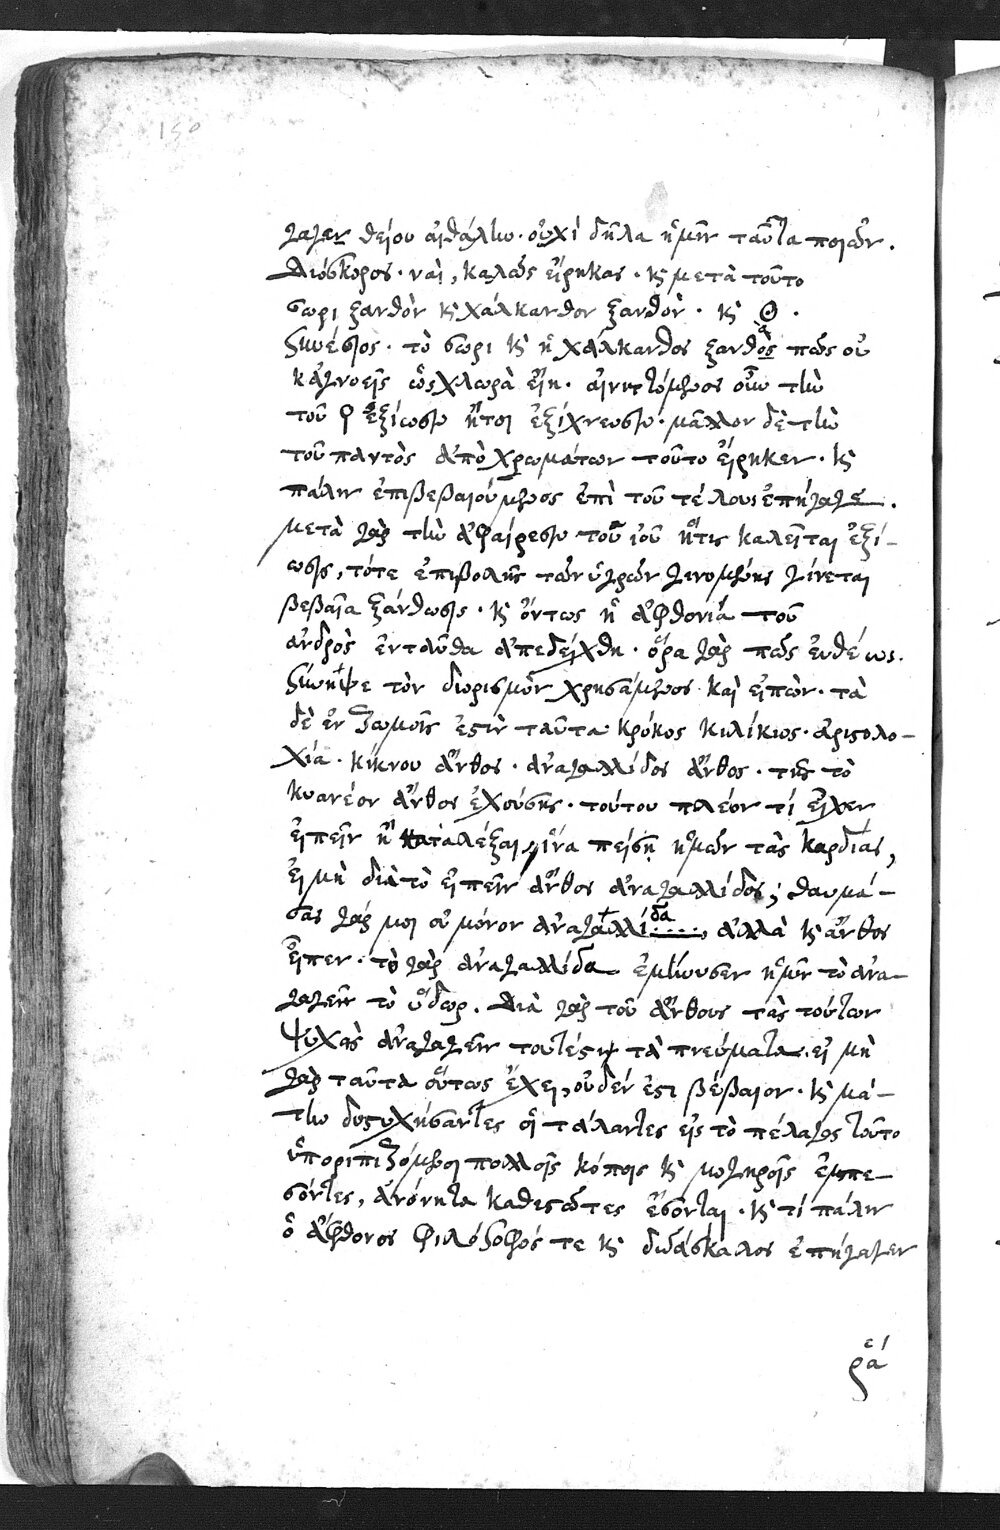 150
γαγεν θείου αἰθάλην· οὐχὶ δῆλα ἡμῖν ταῦτα ποιῶν.
Διόσκορος· ναὶ, καλῶς εἴρηκας· κ̀ μετὰ τοῦτο
σωρι ξανθὸν κ̀ χάλκανθον ξανθὸν· κ̀ .
Συνέσιος· τὸ σωρι κ̀ ἡ χάλκανθος ξανθὸς πῶς οὐ
κἀγνοεῖς ὡς χλωρὰ εἴη· αἰνιττόμενος οὖν τὴν
τοῦ ἐξίωσιν ἤτοι ἐξίχνευσιν· μᾶλλον δὲ τὴν
τοῦ παντὸς ἀπὸ χρωμάτων τοῦτο εἴρηκεν· κ̀
πάλιν ἐπιβεβαιούμενος ἐπὶ τοῦ τέλους ἐπήγαγε.
μετὰ γὰρ τὴν ἀφαίρεσιν τοῦ ἰοῦ ἥτις καλεῖται ἐξί-
ωσις, τότε ἐπιβολῆς τῶν ὑγρῶν γινομένης γίνεται
βεβαῖα ξάνθωσις· κ̀ ὄντως ἡ ἀφθονιά τοῦ
ἀνδρὸς ἐνταῦθα ἀπεδείχθη· ὅρα γὰρ πῶς εὐθέως.
Συνῆψε τὸν διωρισμὸν χρησάμενος καὶ εἰπὼν· τὰ
δὲ ἐν ζωμοῖς ἐστὶν ταῦτα κρόκος κιλίκιος· ἀριστολο-
χία· κίκνου ἄνθος· ἀναγαλλίδος ἄνθος· τῆς τὸ
κυανέον ἄνθος ἐχούσης· τούτου πλέον τί εἶχεν
εἰπεῖν ἢ καταλέξαι, ἵνα πείσῃ ἡμῶν τὰς καρδίας,
εἰ μὴ διὰ τὸ εἰπεῖν ἄνθος ἀναγαλλίδος; θαυμά-
σας γάρ μοι οὐ μόνον ἀναγαλλίδα, ἀλλὰ κ̀ ἄνθος
εἶπεν· τὸ γὰρ ἀναγαλλίδα ἐμήνυσεν ἡμῖν τὸ ἀνα-
γαγεῖν τὸ ὕδωρ. Διὰ γὰρ τοῦ ἄνθους τὰς τούτων
ψυχὰς ἀναγαγεῖν τουτέστιν τὰ πνεύματα. εἰ μὴ
γὰρ ταῦτα οὕτως ἔχει, οὐδέν ἐστι βέβαιον· κ̀ μά-
την δυστυχήσαντες οἱ τάλαντες εἰς τὸ πέλαγος τοῦτο
ὑποριπιζόμενοι πολλοῖς κόποις κ̀ μογηροῖς ἐμπε-
σόντες, ἀνόνητα καθεστῶτες ἔσονται· κ̀ τί πάλιν
ὁ ἄφθονος φιλόσοφός τε κ̀ διδάσκαλος ἐπήγαγεν
ῥεά